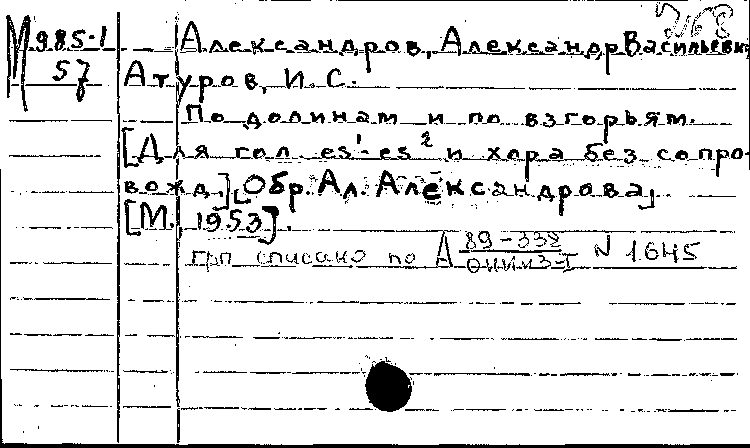 М 985-1 Александров, Александр Васильевич
57 Атуров, И.С.
По долинам и по взгорьям.
[Для гол. es¹-es² и хора без сопро-
вожд.] [Обр. Ал. Александрова].
[М., 1953].
грп списано по А 89-332 N 1645